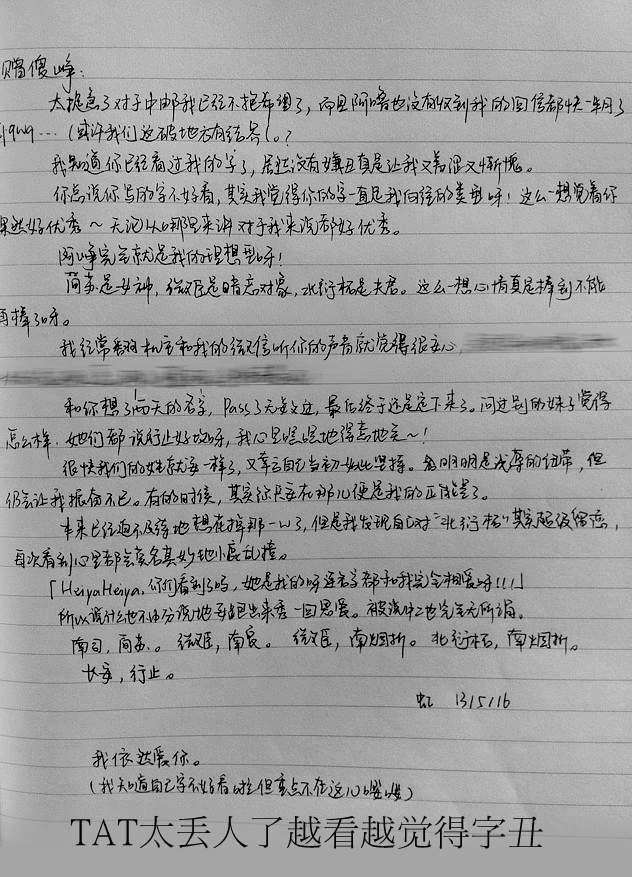 赠傻峥：
太捉急了对于中邮我已经不抱希望了，而且阿嗒也没有收到我的回信都快一年了
(或许我们这破地方有结界)。？
我知道你已经看过我的字了，居然没有嫌丑真是让我又羞涩又惭愧。
你总说你写的字不好看，其实我觉得你的字一直是我向往的类型呀！这么一想觉着你
果然好优秀～无论从哪里来讲对于我来说都好优秀。
阿峥完全就是我的理想型呀！
简安是女神，绥臣是暗恋对象，北行柘是夫君。这么一想心情真是棒到不能
再棒了呀。
我经常翻机主和我的微信听你的声音就觉得很安心，
和你想了两天的名字，Pass了无数之后，最后终于还是定下来了。问过别的妹子觉得
怎么样，她们都说行止好攻呀，我心里嘿嘿地得意地笑～！
很快我们的姓就该一样了，又幸亏自己当初如此坚持。名明明是浅薄的纽带，但
仍会让我振奋不已。有的时候，其实你只要在那儿便是我的正能量了。
本来已经迫不及待地想在撑那一w了，但是我发现自己对“北行柘”其实超级留恋，
再次看到心里都会莫名其妙地小鹿乱撞。
「HeiyaHeiya，你们看到了吗，她是我的呀连名字都和我完全相爱呀！！！」
所以说什么也不由分说地要跑出来秀一回恩爱。被说中二也完全无所谓。
南司，简安。绥臣，南辰。绥臣，南烟折。北行柘，南烟折。
长安，行止。
虹 13/5/16
我依然爱你。
(我知道自己字不好看啦但重点不在这儿嘤嘤)
TAT太丢人了越看越觉得字丑